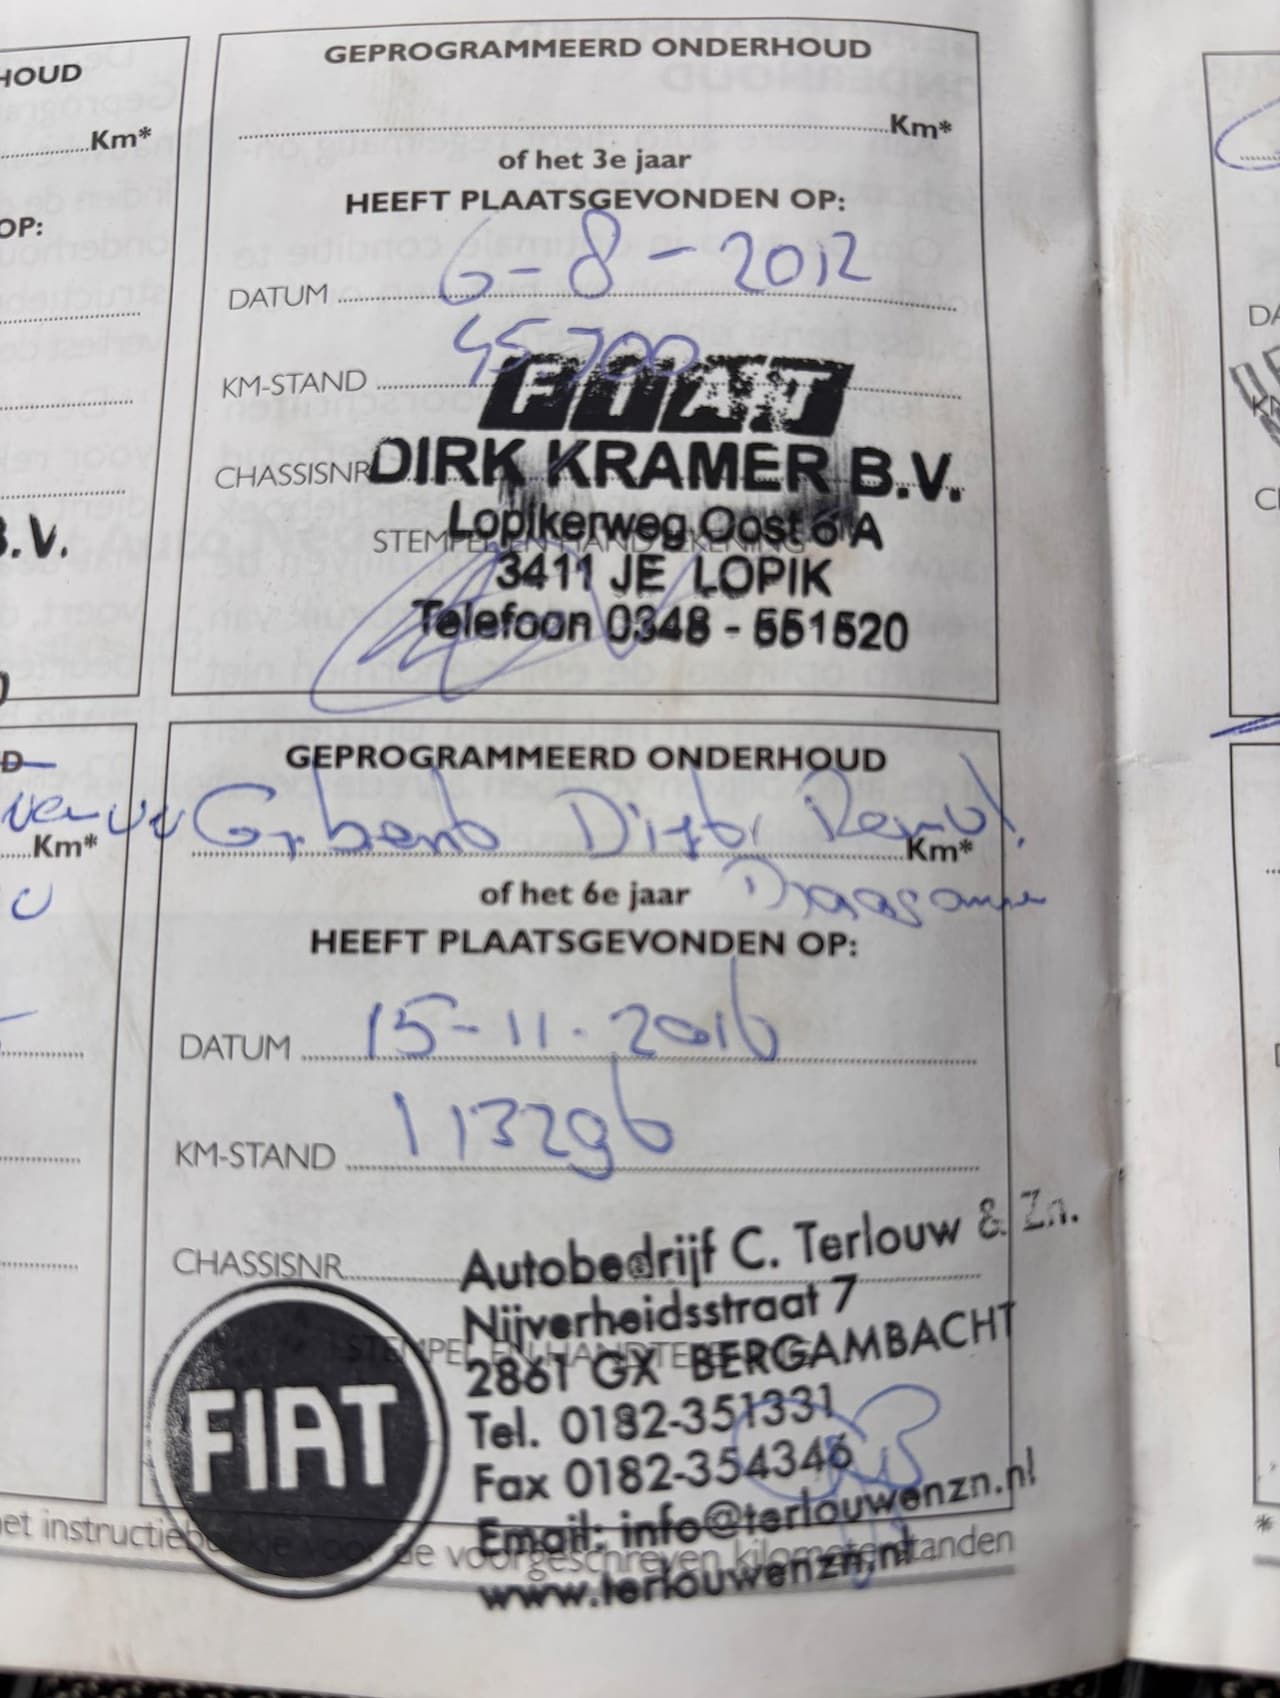 HOUD
Km*
OP:
B.V.
GEPROGRAMMEERD ONDERHOUD
Km*
of het 3e jaar
HEEFT PLAATSGEVONDEN OP:
DATUM 6-8-2012
KM-STAND 45700
FIAT
CHASSISNR
DIRK KRAMER B.V.
STEMPEL EN HANDTEKENING
Lopikerweg Oost 6 A
3411 JE LOPIK
Telefoon 0348 - 551520
D
Km*
GEPROGRAMMEERD ONDERHOUD
Km*
of het 6e jaar
HEEFT PLAATSGEVONDEN OP:
DATUM 15-11-2016
KM-STAND 113296
CHASSISNR
STEMPEL EN HANDTEKENING
FIAT
Autobedrijf C. Terlouw & Zn.
Nijverheidsstraat 7
2861 GX BERGAMBACHT
Tel. 0182-351331
Fax 0182-354346
Email: info@terlouwenzn.nl
www.terlouwenzn.nl
et instructieboekje voor de voorgeschreven kilometerstanden
DA
KM
*